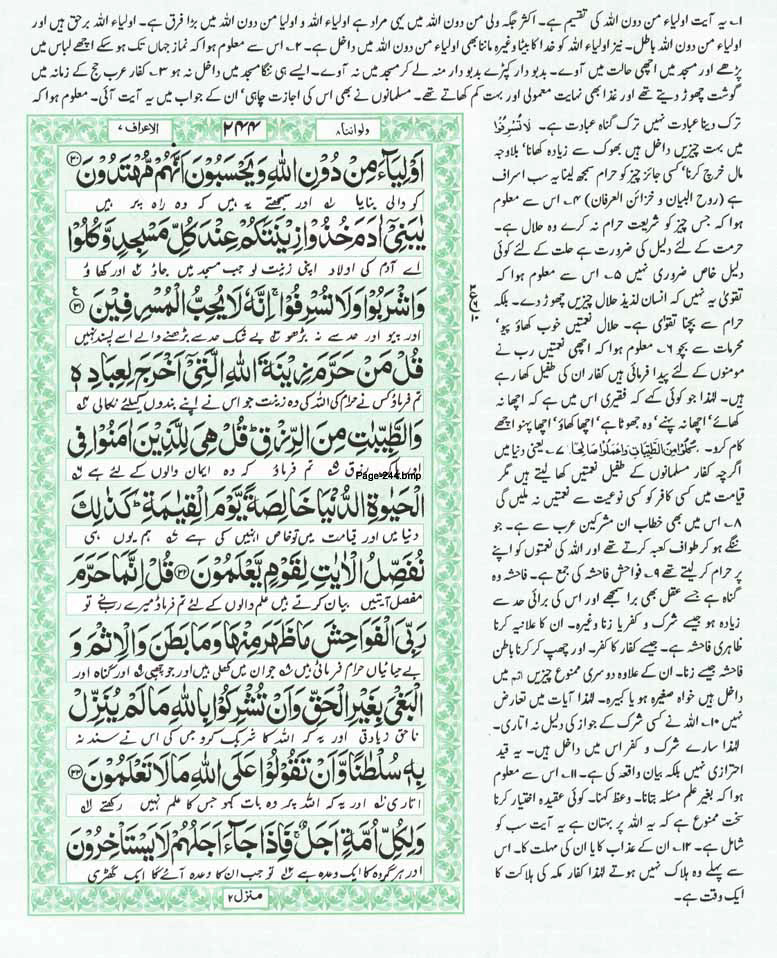 ۱۔ یہ آیت اولیاء من دون اللہ کی تقسیم ہے۔ اکثر جگہ ولی من دون اللہ میں یہی مراد ہے اولیاء اللہ و اولیا من دون اللہ میں بڑا فرق ہے۔ اولیاء اللہ برحق ہیں اور
اولیاء من دون اللہ باطل۔ نیز اولیاء اللہ کو خدا کا بیٹا وغیرہ ماننا بھی اولیاء من دون اللہ میں داخل ہے۔ ۲۔ اس سے معلوم ہوا کہ نماز جہاں تک ہو سکے اچھے لباس میں
پڑھے اور مسجد میں اچھی حالت میں آوے۔ بدبو دار کپڑے بدبو دار منہ لے کر مسجد میں نہ آوے۔ ایسے ہی ننگا مسجد میں داخل نہ ہو ۳۔ کفار عرب حج کے زمانہ میں
گوشت چھوڑ دیتے تھے اور غذا بھی نہایت معمولی اور بہت کم کھاتے تھے۔ مسلمانوں نے بھی اس کی اجازت چاہی' ان کے جواب میں یہ آیت آئی۔ معلوم ہوا کہ
ترک دینا عبادت نہیں ترک گناہ عبادت ہے۔ لَا تُسْرِفُوْا
میں بہت چیزیں داخل ہیں بھوک سے زیادہ کھانا' بلاوجہ
مال خرچ کرنا' کسی جائز چیز کو حرام سمجھ لینا یہ سب اسراف
ہے (روح البیان و خزائن العرفان) ۴۔ اس سے معلوم
ہوا کہ جس چیز کو شریعت حرام نہ کرے وہ حلال ہے۔
حرمت کے لئے دلیل کی ضرورت ہے حلت کے لئے کوئی
دلیل خاص ضروری نہیں ۵۔ اس سے معلوم ہوا کہ
تقویٰ یہ نہیں کہ انسان لذیذ حلال چیزیں چھوڑ دے۔ بلکہ
حرام سے بچنا تقویٰ ہے۔ حلال نعمتیں خوب کھاؤ پیو'
محرمات سے بچو ۶۔ معلوم ہوا کہ اچھی نعمتیں رب نے
مومنوں کے لئے پیدا فرمائی ہیں کفار ان کی طفیل کھا رہے
ہیں۔ لہٰذا جو کوئی کہے کہ فقیری اس میں ہے کہ اچھا نہ
کھائے' اچھا نہ پہنے' وہ جھوٹا ہے' اچھا کھاؤ' اچھا پہنو اچھے
کام کرو۔ كُلُوْا مِنَ الطَّيِّبَاتِ وَاعْمَلُوْا صَالِحًا ۷۔ یعنی دنیا میں
اگرچہ کفار مسلمانوں کے طفیل نعمتیں کھا لیتے ہیں مگر
قیامت میں کسی کافر کو کسی نوعیت سے نعمتیں نہ ملیں گی
۸۔ اس میں بھی خطاب ان مشرکین عرب سے ہے۔ جو
ننگے ہو کر طواف کعبہ کرتے تھے اور اللہ کی نعمتوں کو اپنے
پر حرام کر لیتے تھے ۹۔ فواحش فاحشہ کی جمع ہے۔ فاحشہ وہ
گناہ ہے جسے عقل بھی برا سمجھے اور اس کی برائی حد سے
زیادہ ہو جیسے شرک و کفر یا زنا وغیرہ۔ ان کا علانیہ کرنا
ظاہری فاحشہ ہے۔ جیسے کفار کا کفر۔ اور چھپ کر کرنا باطن
فاحشہ جیسے زنا۔ ان کے علاوہ دوسری ممنوع چیزیں اثم میں
داخل ہیں خواہ صغیرہ ہو یا کبیرہ۔ لہٰذا آیات میں تعارض
نہیں ۱۰۔ اللہ نے کسی شرک کے جواز کی دلیل نہ اتاری۔
لہٰذا سارے شرک و کفر اس میں داخل ہیں۔ یہ قید
احترازی نہیں بلکہ بیان واقعہ کی ہے۔ ۱۱۔ اس سے معلوم
ہوا کہ بغیر علم مسئلہ بتانا۔ وعظ کہنا۔ کوئی عقیدہ اختیار کرنا
سخت ممنوع ہے کہ یہ اللہ پر بہتان ہے یہ آیت سب کو
شامل ہے۔ ۱۲۔ ان کے عذاب کا یا ان کی مہلت کا۔ اس
سے پہلے وہ ہلاک نہیں ہوتے لہٰذا کفار مکہ کی ہلاکت کا
ایک وقت ہے۔
ولواننا ۸ ۲۴۴ الاعراف ۷
اَوْلِيَآءَ مِنْ دُوْنِ اللّٰهِ وَيَحْسَبُوْنَ اَنَّهُمْ مُّهْتَدُوْنَ ۳۰
کو والی بنایا اور سمجھتے یہ ہیں کہ وہ راہ پر ہیں
يٰبَنِيْٓ اٰدَمَ خُذُوْا زِيْنَتَكُمْ عِنْدَ كُلِّ مَسْجِدٍ وَّكُلُوْا
اے آدم کی اولاد اپنی زینت لو جب مسجد میں جاؤ اور کھاؤ
وَاشْرَبُوْا وَلَا تُسْرِفُوْا ۚ اِنَّهٗ لَا يُحِبُّ الْمُسْرِفِيْنَ ۳۱
اور پیو اور حد سے نہ بڑھو بے شک حد سے بڑھنے والے اسے پسند نہیں
قُلْ مَنْ حَرَّمَ زِيْنَةَ اللّٰهِ الَّتِيْٓ اَخْرَجَ لِعِبَادِهٖ
تم فرماؤ کس نے حرام کی اللہ کی وہ زینت جو اس نے اپنے بندوں کیلئے نکالی
وَالطَّيِّبٰتِ مِنَ الرِّزْقِ ؕ قُلْ هِيَ لِلَّذِيْنَ اٰمَنُوْا فِي
اور پاک رزق تم فرماؤ کہ وہ ایمان والوں کے لئے ہے
Page-244.bmp
الْحَيٰوةِ الدُّنْيَا خَالِصَةً يَّوْمَ الْقِيٰمَةِ ؕ كَذٰلِكَ
دنیا میں اور قیامت میں تو خاص انہیں کی ہے ہم یوں ہی
نُفَصِّلُ الْاٰيٰتِ لِقَوْمٍ يَّعْلَمُوْنَ ۳۲ قُلْ اِنَّمَا حَرَّمَ
مفصل آیتیں بیان کرتے ہیں علم والوں کے لئے تم فرماؤ میرے رب نے تو
رَبِّيَ الْفَوَاحِشَ مَا ظَهَرَ مِنْهَا وَمَا بَطَنَ وَالْاِثْمَ وَ
بے حیائیاں حرام فرمائی ہیں جو ان میں کھلی ہیں اور جو چھپی اور گناہ اور
الْبَغْيَ بِغَيْرِ الْحَقِّ وَاَنْ تُشْرِكُوْا بِاللّٰهِ مَا لَمْ يُنَزِّلْ
ناحق زیادتی اور یہ کہ اللہ کا شریک کرو جس کی اس نے سند نہ
بِهٖ سُلْطٰنًا وَّاَنْ تَقُوْلُوْا عَلَى اللّٰهِ مَا لَا تَعْلَمُوْنَ ۳۳
اتاری اور یہ کہ اللہ پر وہ بات کہو جس کا علم نہیں رکھتے
وَلِكُلِّ اُمَّةٍ اَجَلٌ ۚ فَاِذَا جَآءَ اَجَلُهُمْ لَا يَسْتَاْخِرُوْنَ
اور ہر گروہ کا ایک وعدہ ہے تو جب ان کا وعدہ آئے گا ایک گھڑی
منزل ۲